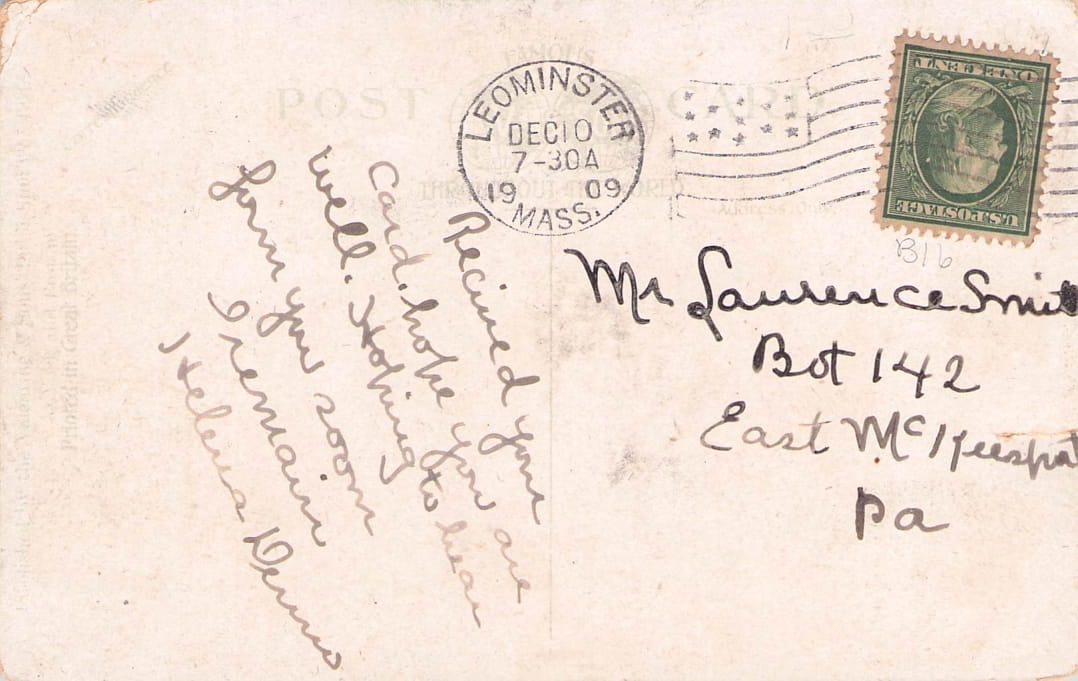 FAMOUS
POST CARD
THROUGHOUT THE WORLD
Address Only
LEOMINSTER
DEC 10
7-30A
1909
MASS.
ONE CENT
U.S. POSTAGE
B16
Mr Laurence Smit
Bot 142
East McKeesport
Pa
Recived your
Card. hope you are
well. Hoping to hear
from you soon
I remain
Helena